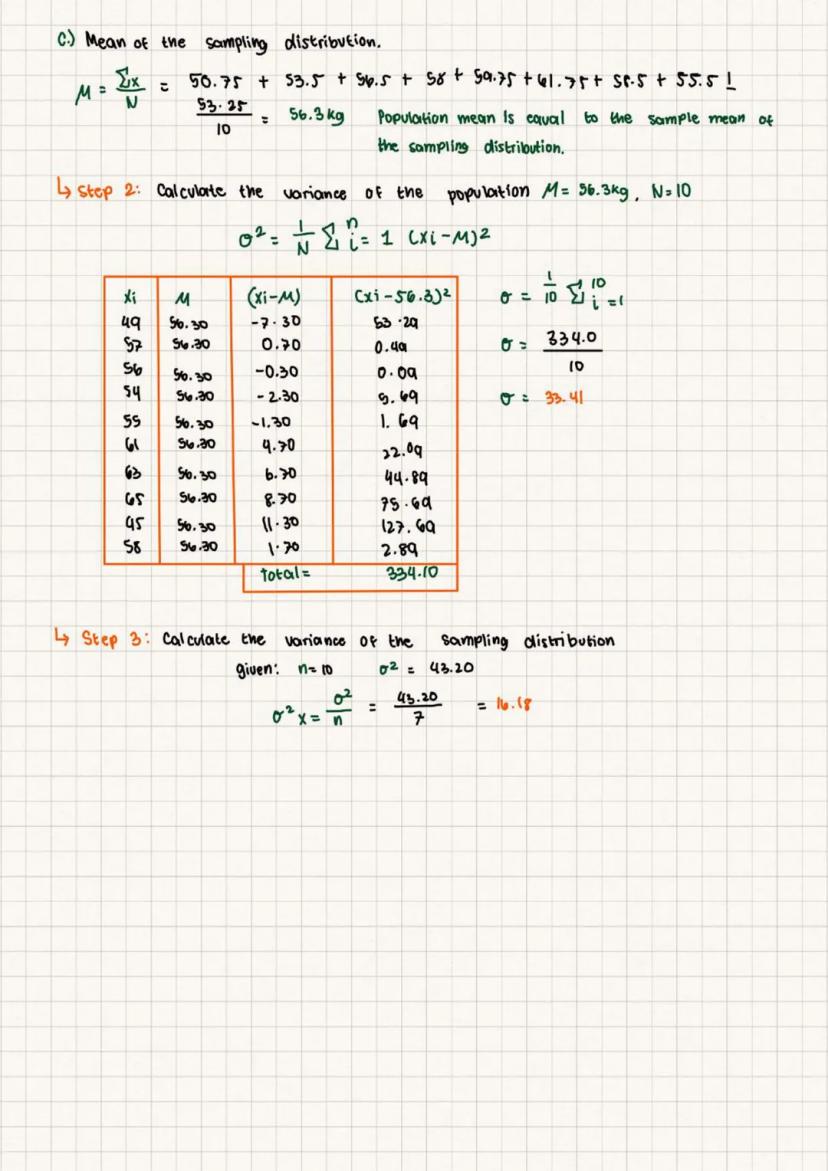 C.) Mean of the sampling distribution.
M = Σx / N = 50.75 + 53.5 + 56.5 + 58 + 59.75 + 61.75 + 58.5 + 55.5 !
53.25 / 10 = 56.3 kg Population mean is equal to the sample mean of
the sampling distribution.
↳ Step 2: Calculate the variance of the population M = 56.3kg, N=10
σ² = 1/N Σ n i = 1 (xi - M)2
xi M (xi-M) (xi-56.3)² σ = 1/10 Σ 10 i =1
49 56.30 -7.30 53.29
57 56.30 0.70 0.49 σ = 334.0 / 10
56 56.30 -0.30 0.09
54 56.30 -2.30 5.69 σ = 33.41
55 56.30 -1.30 1.69
61 56.30 4.70 22.09
63 56.30 6.70 44.89
65 56.30 8.70 75.69
45 56.30 11.30 127.69
58 56.30 1.70 2.89
Total = 334.10
↳ Step 3: Calculate the variance of the sampling distribution
given: n= 10 σ² = 43.20
σ² x = σ²/n = 43.20 / 7 = 16.18